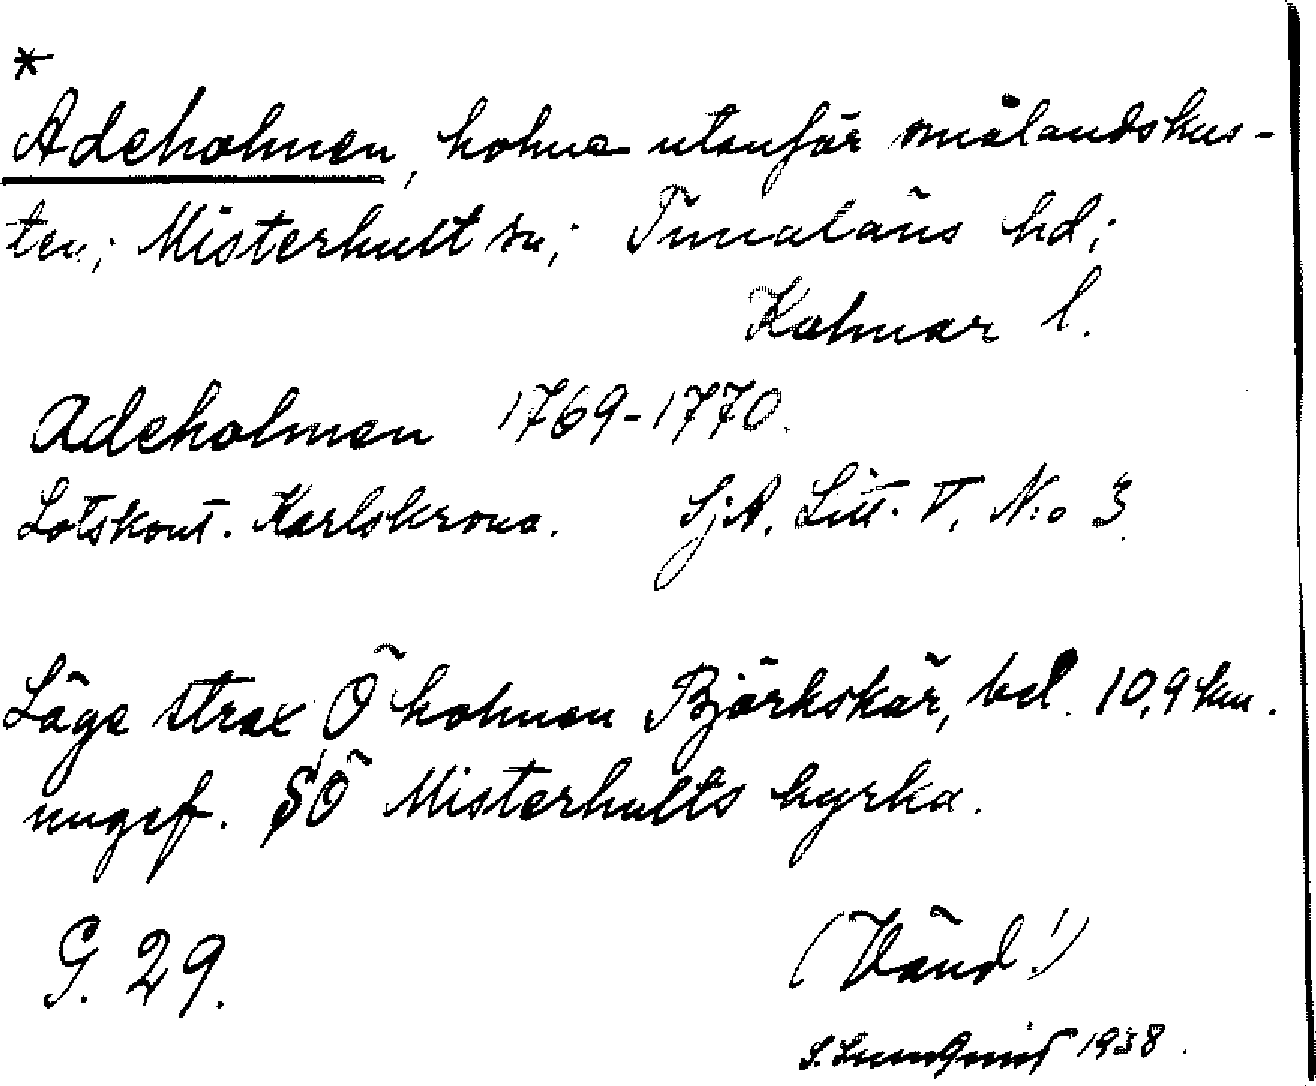 *
Adeholmen, holme utanför smålandskus-
ten; Misterhult sn; Tunaläns hd;
Kalmar l.
Adeholmen 1769-1770.
Lotskont. Karlskrona. SjA. Litt. V. N:o 3.
Läge strax Ö holmen Björkskär, bel. 10,9 km.
ungef. SÖ Misterhults kyrka.
G. 29.
(Vänd!)
S. Lundqvist 1938.